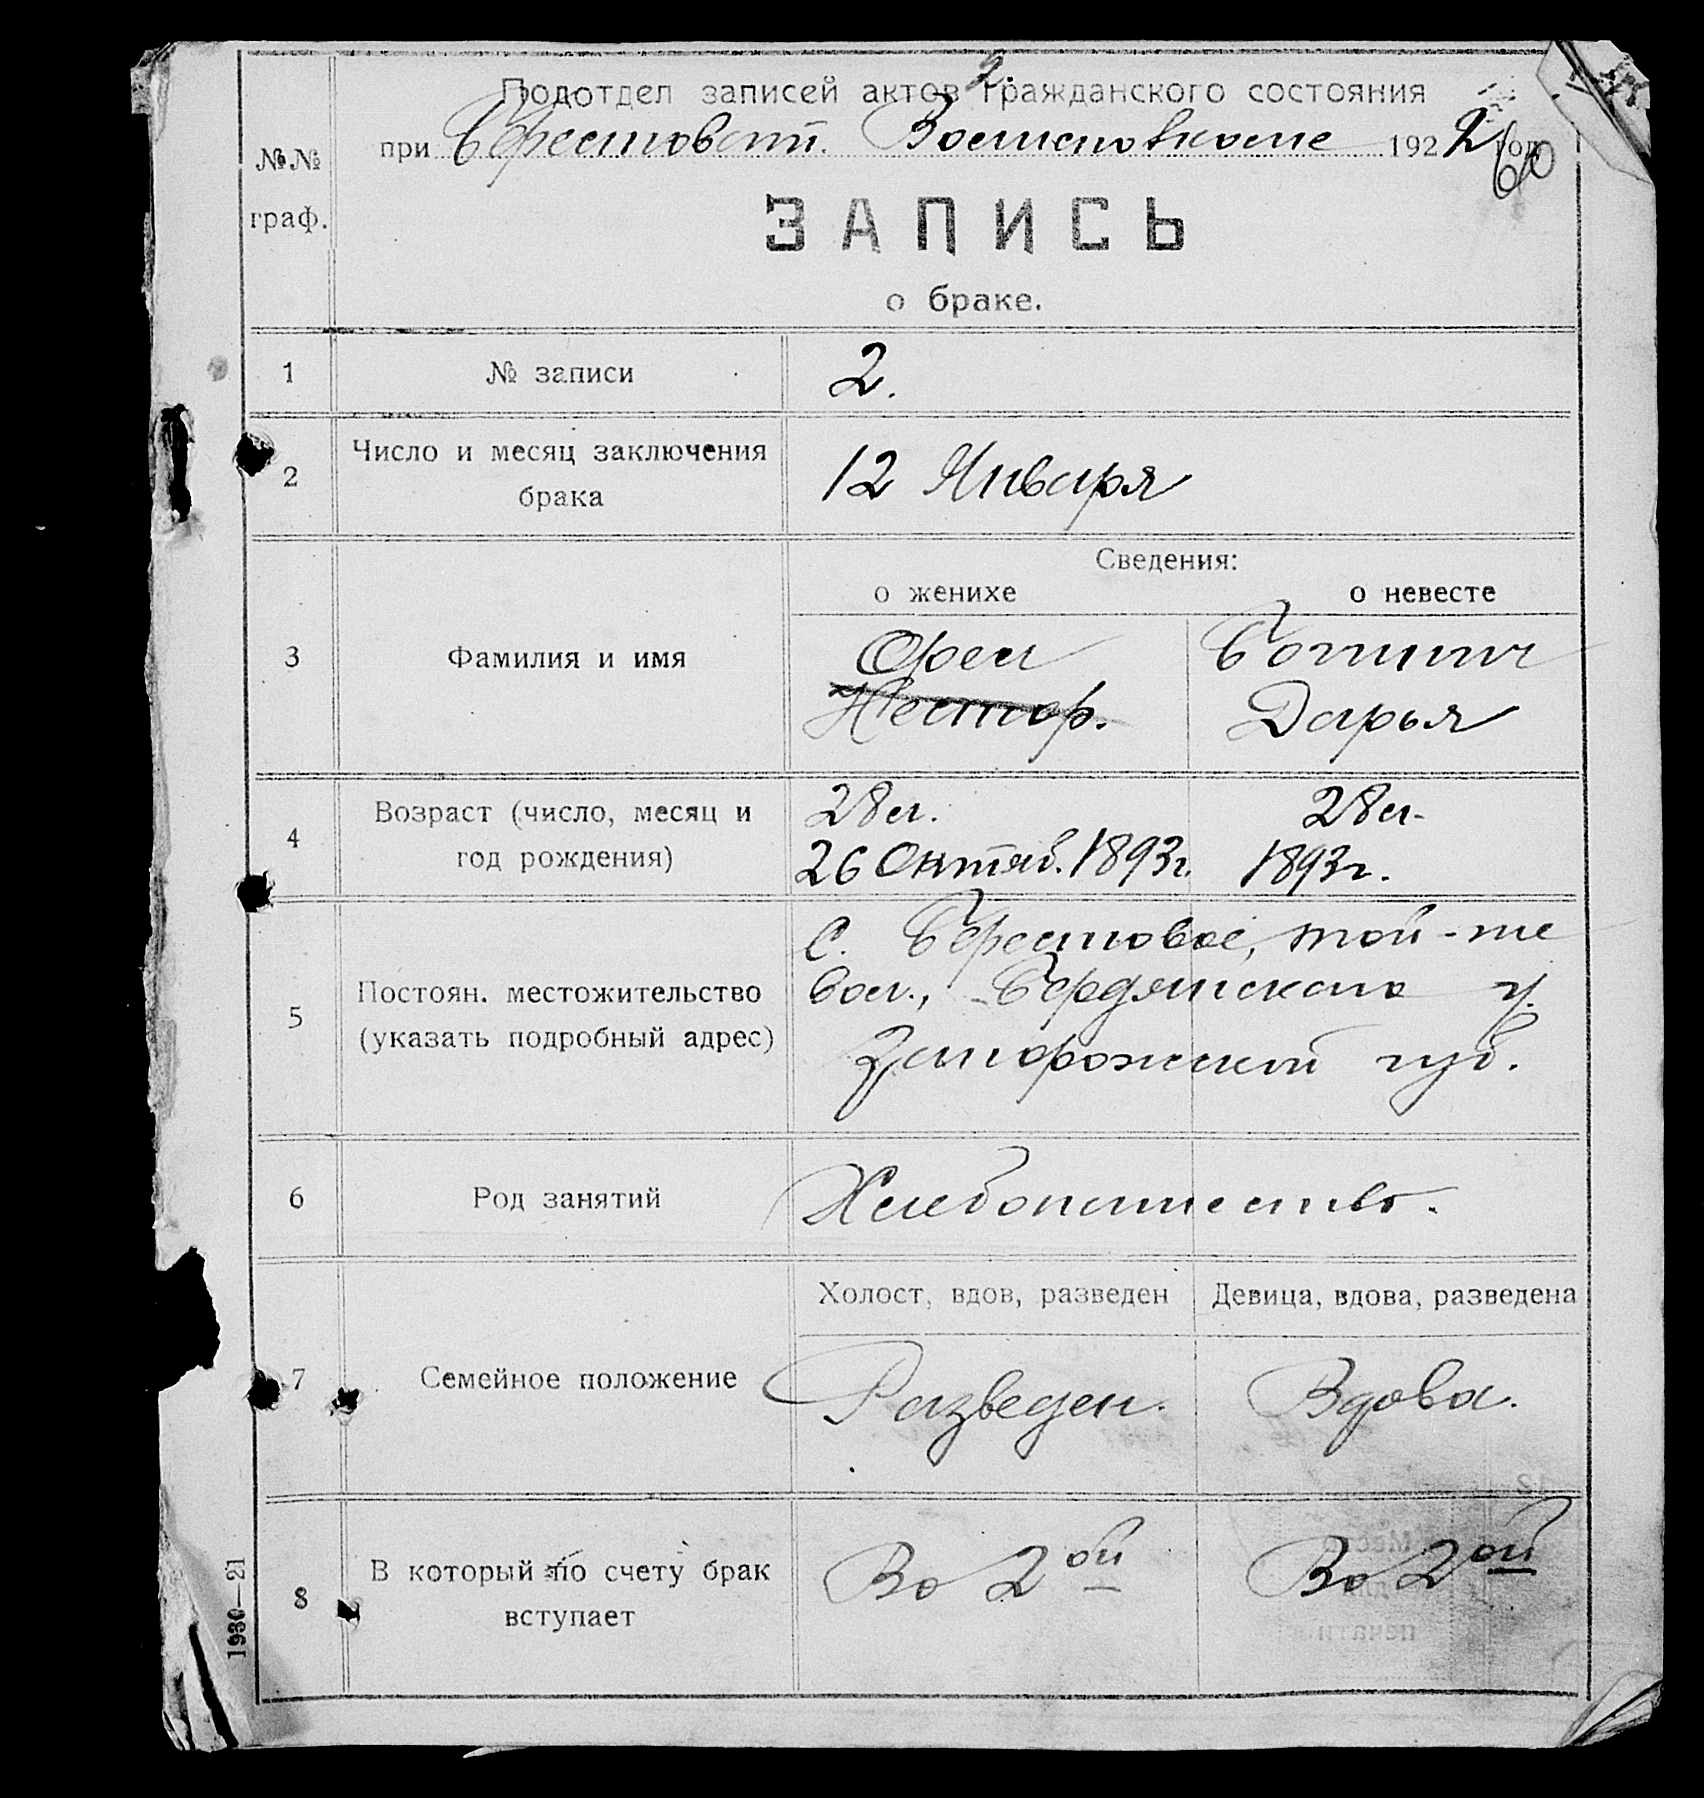 2.
Подотдел записей актов гражданского состояния
при Берестоват. Волисполкоме 1922 год
60
№№
граф.
ЗАПИСЬ
о браке.
1 № записи 2.
2 Число и месяц заключения
брака
12 Января
Сведения:
о женихе о невесте
3 Фамилия и имя
Орел
Нестор.
Дарья
4 Возраст (число, месяц и
год рождения)
28 л. 28 л.
26 Октяб. 1893г. 1893г.
5 Постоян. местожительство
(указать подробный адрес)
с. Берестовое, той-же
вол., Бердянского у.
Запорожской губ.
6 Род занятий Хлебопашество.
Холост, вдов, разведен Девица, вдова, разведена
7 Семейное положение Разведен. Вдова.
8 В который по счету брак
вступает
Во 2ой Во 2ой
1930—21